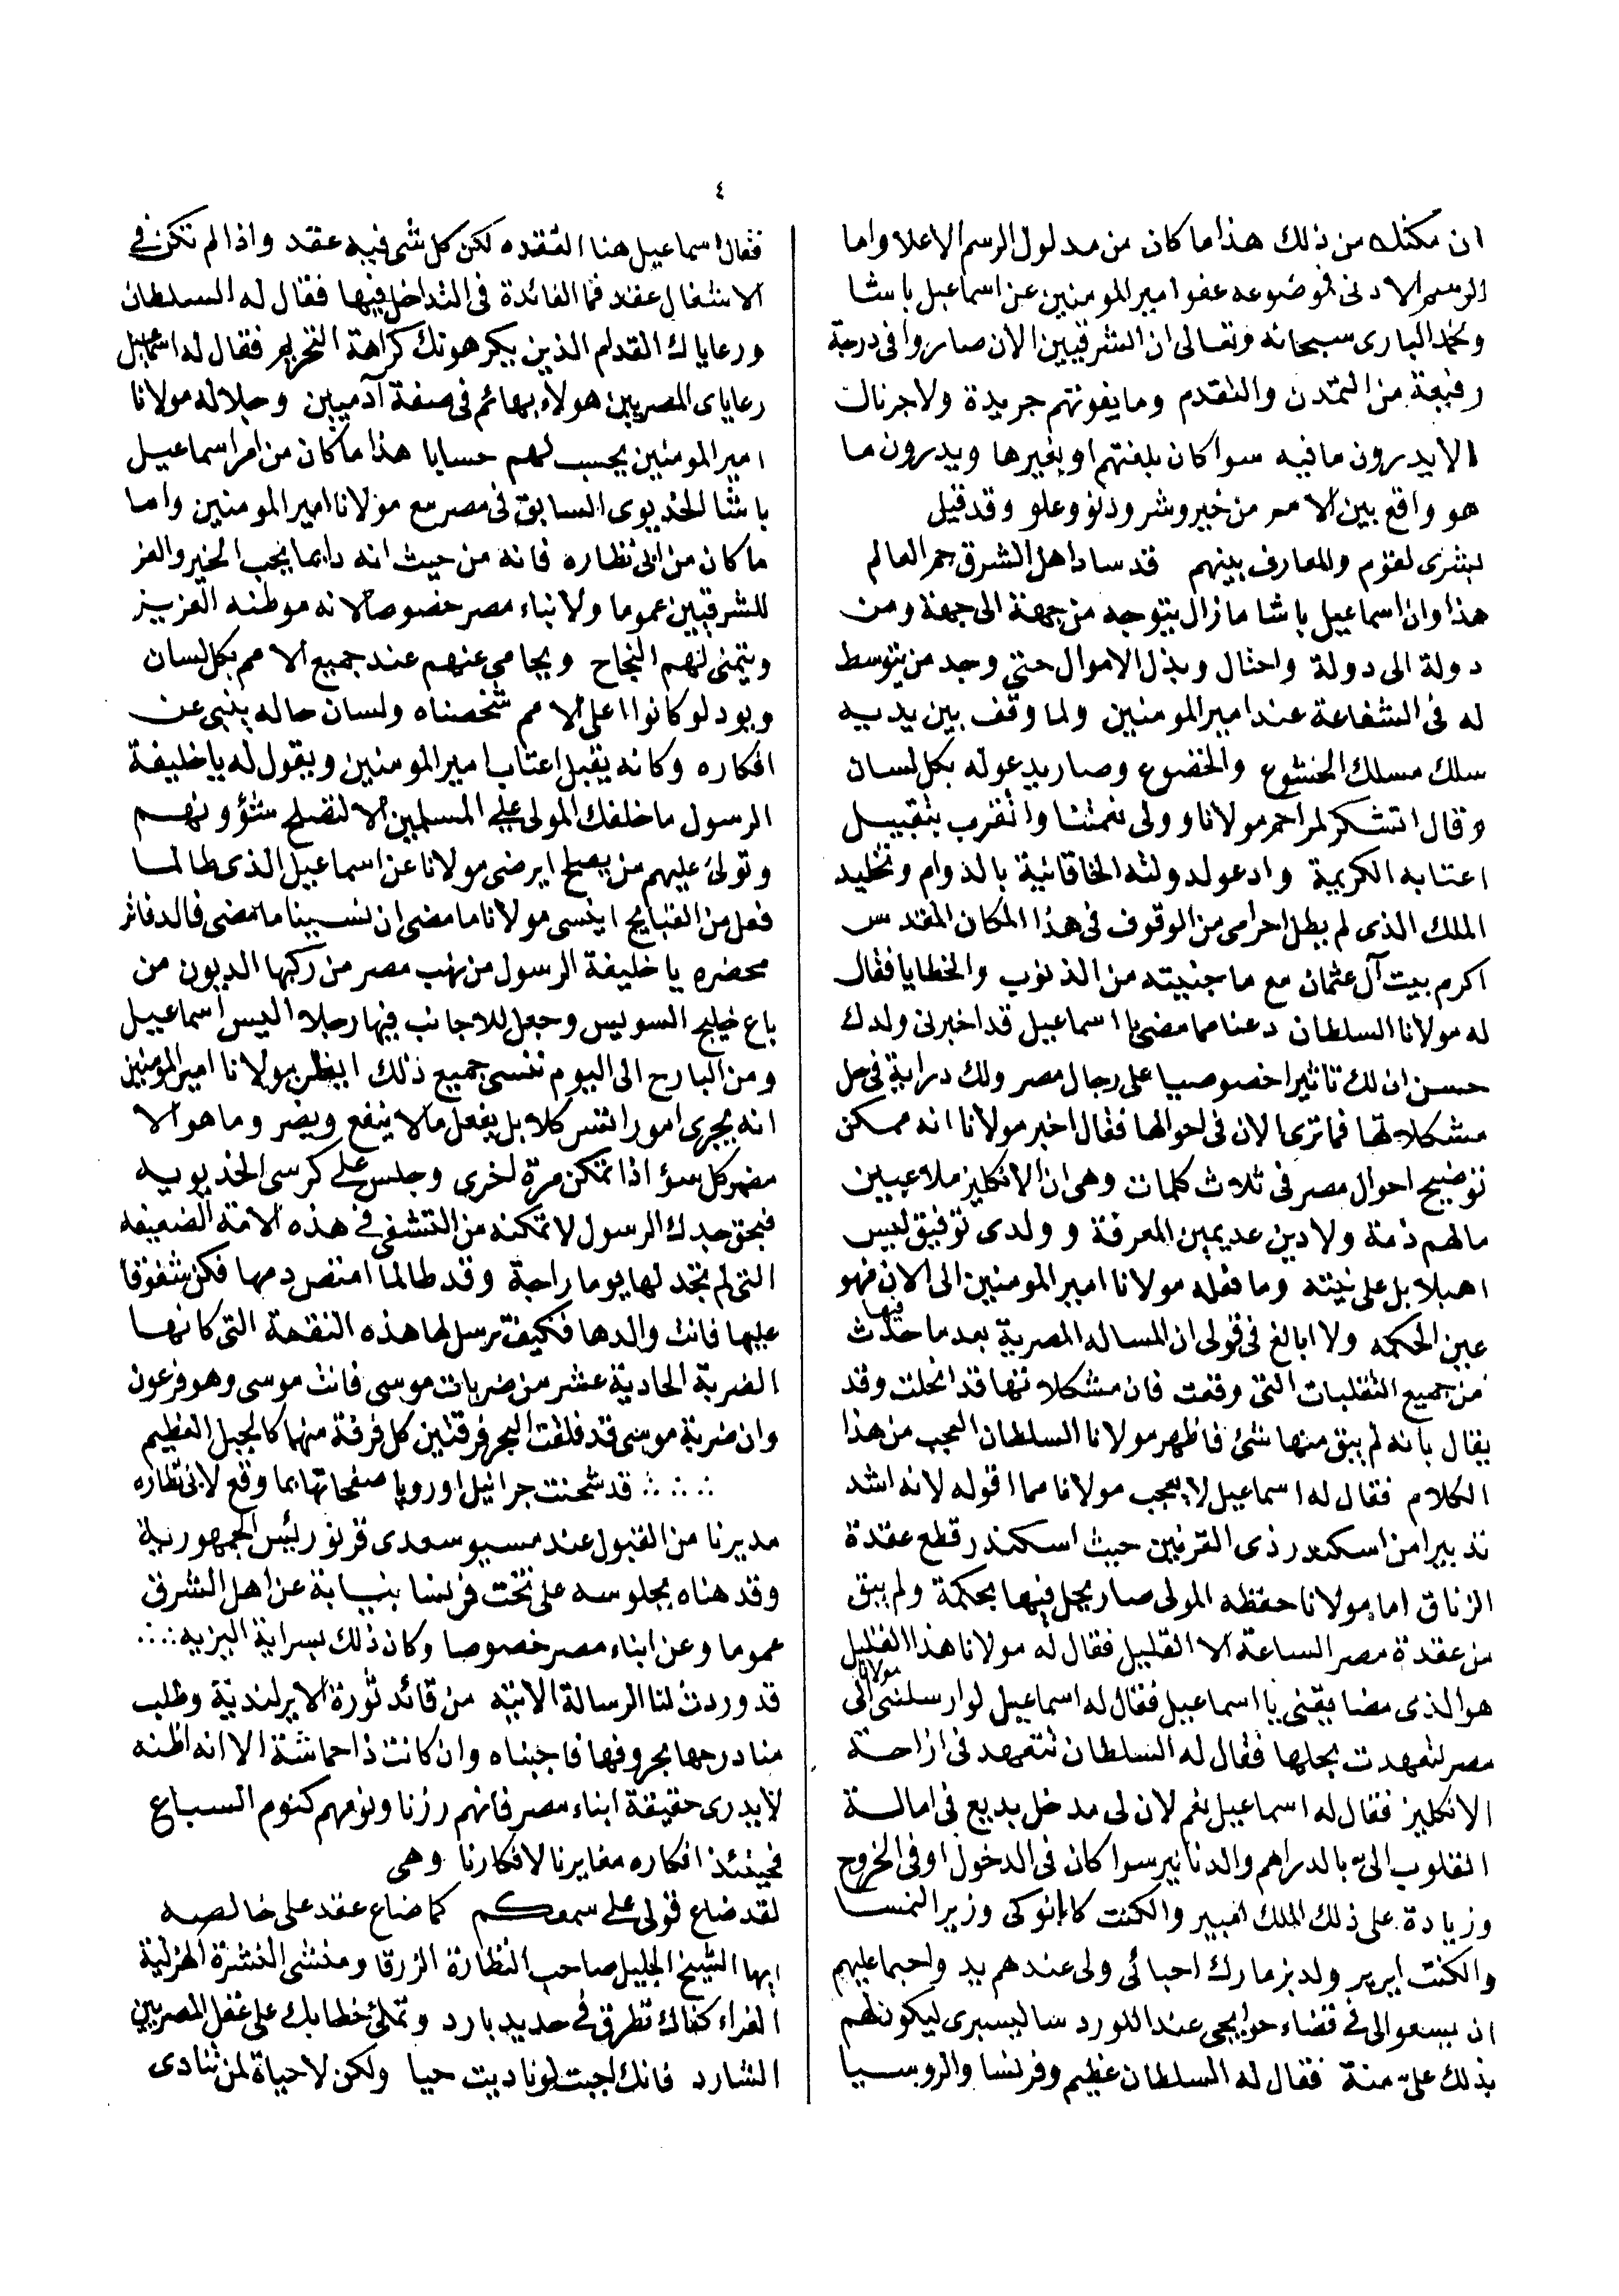 ٤
ان مكنك من ذلك هذا ما كان من مدلول الرسم الاعلا واما
الرسم الادنى فموضوعه عفو امير المومنين عن اسماعيل باشا
ونحمد البارى سبحانه وتعالى ان الشرقيين الان صاروا فى درجة
رفيعة من التمدن والتقدم وما يفوتهم جريدة ولا جرنال
الا يدرون ما فيه سوا كان بلغتهم او بغيرها ويدرون ما
هو واقع بين الامم من خير وشر ودنو وعلو وقد قيل
بشرى لقوم والمعارف بينهم قد ساد اهل الشرق جم العالم
هذا وان اسماعيل باشا ما زال يتوجه من جهة الى جهة ومن
دولة الى دولة واحتال وبذل الاموال حتى وجد من يتوسط
له فى الشفاعة عند امير المومنين ولما وقف بين يديه
سلك مسلك الخشوع والخضوع وصار يدعو له بكل لسان
وقال اتشكر لمراحم مولانا وولى نعمتنا واتقرب بتقبيل
اعتابه الكريمة وادعو لدولته الخاقانية بالدوام وتخليد
الملك الذى لم يطل احرامى من الوقوف فى هذا المكان المقدس
اكرم بيت آل عثمان مع ما جنيته من الذنوب والخطايا فقال
له مولانا السلطان دعنا مما مضى يا اسماعيل قد اخبرنى ولدك
حسن ان لك تاثيرا خصوصيا على رجال مصر ولك دراية فى حل
مشكلاتها فما ترى الان فى احوالها فقال اخبر مولانا انه ممكن
توضيح احوال مصر فى ثلاث كلمات وهى ان الانكليز ملاعيبين
مالهم ذمة ولا دين عديمين المعرفة وولدى توفيق ليس
اهبلا بل على نيته وما فعله مولانا امير المومنين الى الان فهو
عين الحكمه ولا ابالغ فى قولى ان المساله المصرية بعد ما حدث فيها
من جميع التقلبات التى وقعت فان مشكلاتها قد انحلت وقد
يقال بانه لم يبق منها شئ فاظهر مولانا السلطان العجب من هذا
الكلام فقال له اسماعيل لا يعجب مولانا مما اقوله لانه اشد
تدبيرا من اسكندر ذى القرنين حيث اسكندر قطع عقدة
الزناق اما مولانا حفظه المولى صار يحل فيها بحكمة ولم يبق
من عقدة مصر الساعة الا القليل فقال له مولانا هذا القليل
هو الذى مضايقنى يا اسماعيل فقال له اسماعيل لو ارسلنى مولانا الى
مصر لتعهدت بحلها فقال له السلطان تتعهد فى ازاحة
الانكليز فقال له اسماعيل نعم لان لى مدخل بديع فى امالة
القلوب الىّ بالدراهم والدنانير سوا كان فى الدخول او فى الخروج
وزيادة على ذلك الملك امبير والكنت كالنوكى وزير النمسا
والكنت ايربر ولد بزمارك احبائى ولى عندهم يد واجبا عليهم
ان يسعوا لى فى قضاء حوايجى عند اللورد سالیسبرى ليكون لهم
بذلك علىّ منة فقال له السلطان عظيم وفرنسا والروسيا
فقال اسماعيل هنا العقده لكن كل شى فيه عقد واذا لم تكن فى
الاشغال عقد فما الفائدة فى التداخل فيها فقال له السلطان
ورعاياك القدام الذين يكرهونك كراهة التحريم فقال له اسماعيل
رعاياى المصريين هولاء بهائم فى صفة آدميين وجلالة مولانا
امير المومنين يحسب لهم حسابا هذا ما كان من امر اسماعيل
باشا الخديوى السابق فى مصر مع مولانا امير المومنين واما
ما كان من ابى نظاره فانه من حيث انه دايما يحب الخير والعز
للشرقيين عموما ولابناء مصر خصوصا لانه موطنه العزيز
ويتمنى لهم النجاح ويحامى عنهم عند جميع الامم بكل لسان
ويود لو كانوا اعلى الامم شخصناه ولسان حاله ينبى عن
افكاره وكانه يقبل اعتاب امير المومنين ويقول له يا خليفة
الرسول ما خلفك المولى على المسلمين الا لتصلح شئوونهم
وتولى عليهم من يصلح ايرضى مولانا عن اسماعيل الذى طالما
فعل من القبايح اينسى مولانا ما مضى ان نسينا ما مضى فالدفاتر
محضره يا خليفة الرسول من نهب مصر من ركبها الديون من
باع خليج السويس وجعل للاجانب فيها رجلا اليس اسماعيل
ومن البارح الى اليوم ننسى جميع ذلك ايظن مولانا امير المومنين
انه يجرى امورا تسر كلا بل يفعل ما لا ينفع ويضر وما هو الا
مضمر كل سؤ اذا تمكن مرة اخرى وجلس على كرسى الخديويه
فبحق جدك الرسول لا تمكنه من التشفى فى هذه الامة الضعيفه
التى لم تجد لها يوما راحة وقد طالما امتص دمها فكن شفوقا
عليها فانت والدها فكيف ترسل لها هذه النقمة التى كانها
الضربة الحادية عشر من ضربات موسى فانت موسى وهو فرعون
وان ضربة موسى قد فلقت البحر فرقتين كل فرقة منهما كالجبل العظيم
∴ ∴ قد شحنت جرانيل اوروپا صفحاتها بما وقع لابى نظاره
مديرنا من القبول عند مسيو سعدى قرنو رئيس الجمهورية
وقد هناه بجلوسه على تخت فرنسا بنيابة عن اهل الشرق
عموما وعن ابناء مصر خصوصا وكان ذلك بسراية اليزيه ∴
قد وردت لنا الرسالة الاتيه من قائد ثورة الايرلندية وطلب
منا درجها بحروفها فاجبناه وان كانت ذا حماشة الا انه اظنه
لا يدرى حقيقة ابناء مصر فانهم رزنا ونومهم كنوم السباع
فحينئذ افكاره مغايرنا لافكارنا وهى
لقد ضاع قولى على سمعكم كما ضاع عقد على خالصه
ايها الشيخ الجليل صاحب النظارة الزرقا ومنشى النشرة الهزلية
الغراء كفاك تطرق فى حديد بارد وتملئ خطابك على عقل المصريين
الشارد فانك لجبت لو ناديت حيا ولكن لا حياة لمن تنادى